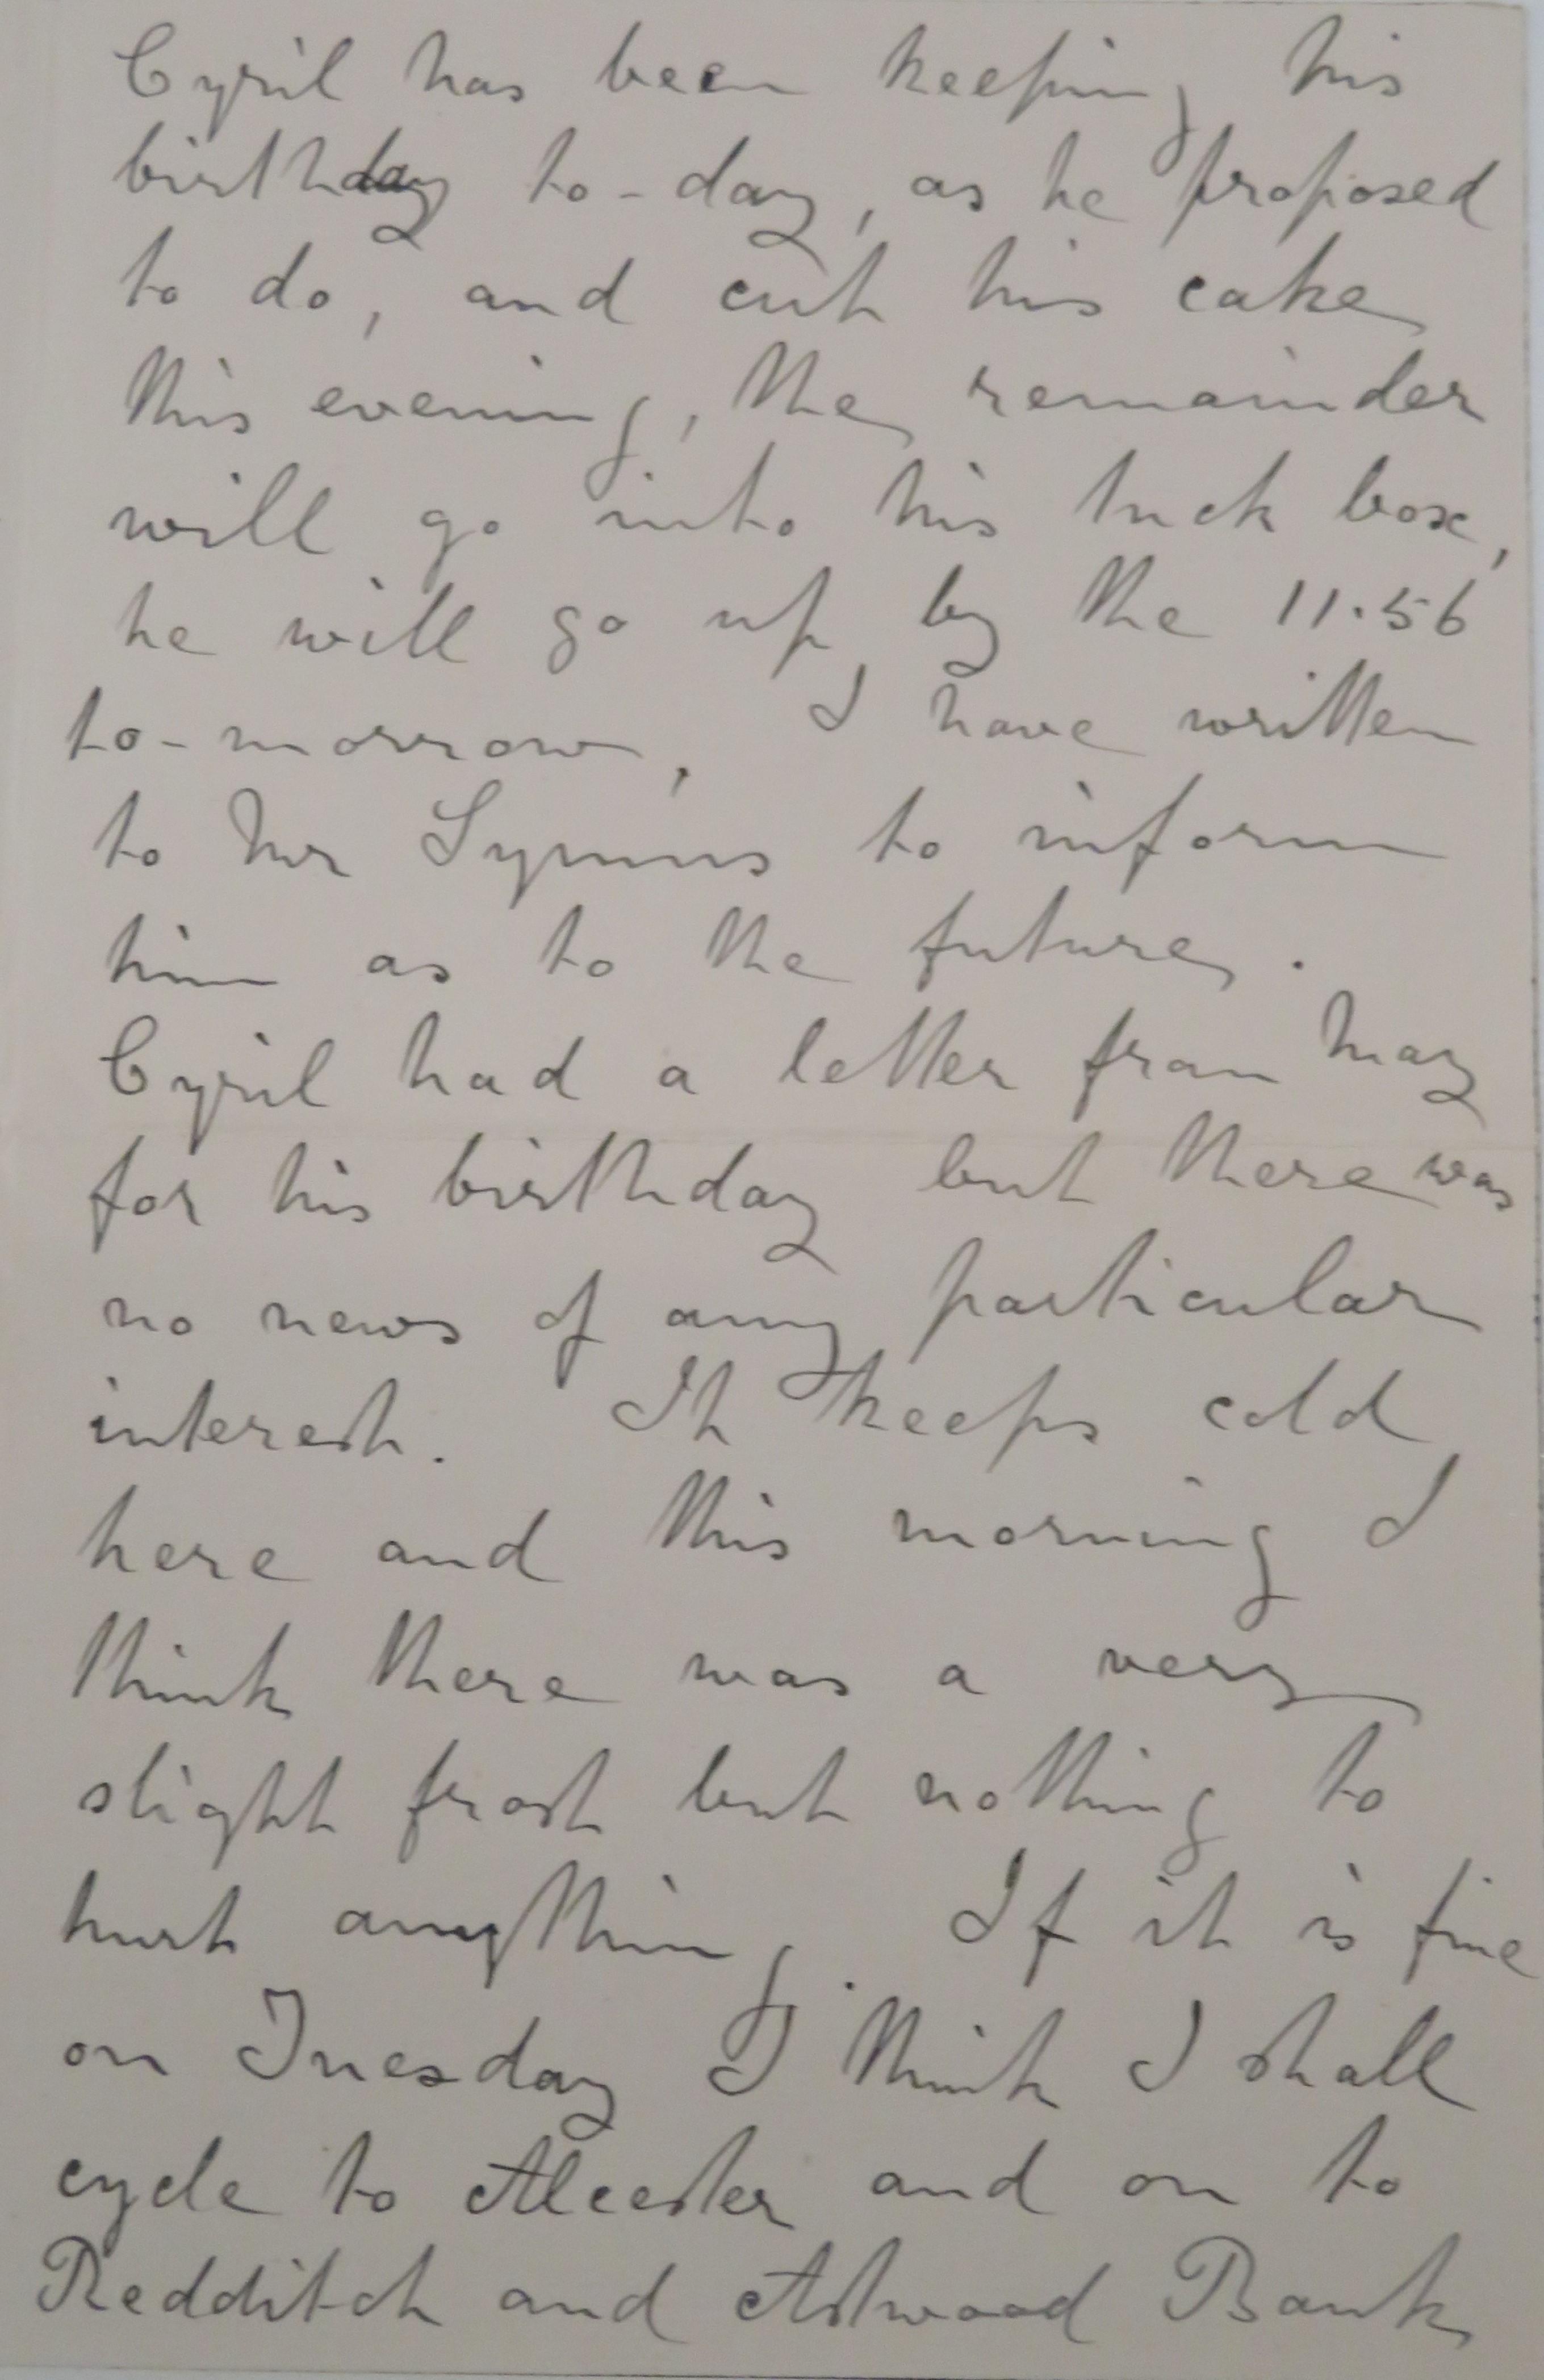 Cyril has been keeping his
birthday to-day, as he proposed
to do, and cut his cake
this evening, the remainder
will go into his tuck box,
he will go up by the 11.56
to-morrow, I have written
to Mr Symns to inform
him as to the future.
Cyril had a letter from May
for his birthday but there was
no news of any particular
interest. It keeps cold
here and this morning I
think there was a very
slight frost but nothing to
hurt anything. If it is fine
on Tuesday I think I shall
cycle to Alcester and on to
Redditch and Astwood Bank